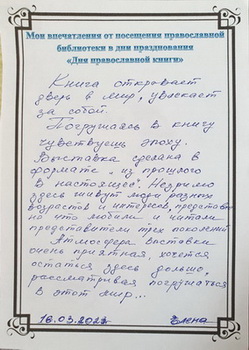 Мои впечатления от посещения православной
библиотеки в дни празднования
«Дня православной книги»
Книга открывает
дверь в мир, увлекает
за собой.
Погружаясь в книгу
чувствуешь эпоху.
Выставка сделана в
формате „из прошлого
в настоящее". Незримо
здесь живут люди разных
возрастов и интересов,
на что любили и читали
представители трех поколений
Атмосфера выставки
очень приятная, хочется
остаться здесь дольше,
рассматривая погрузиться
в этот мир...
16.03.202 Елена